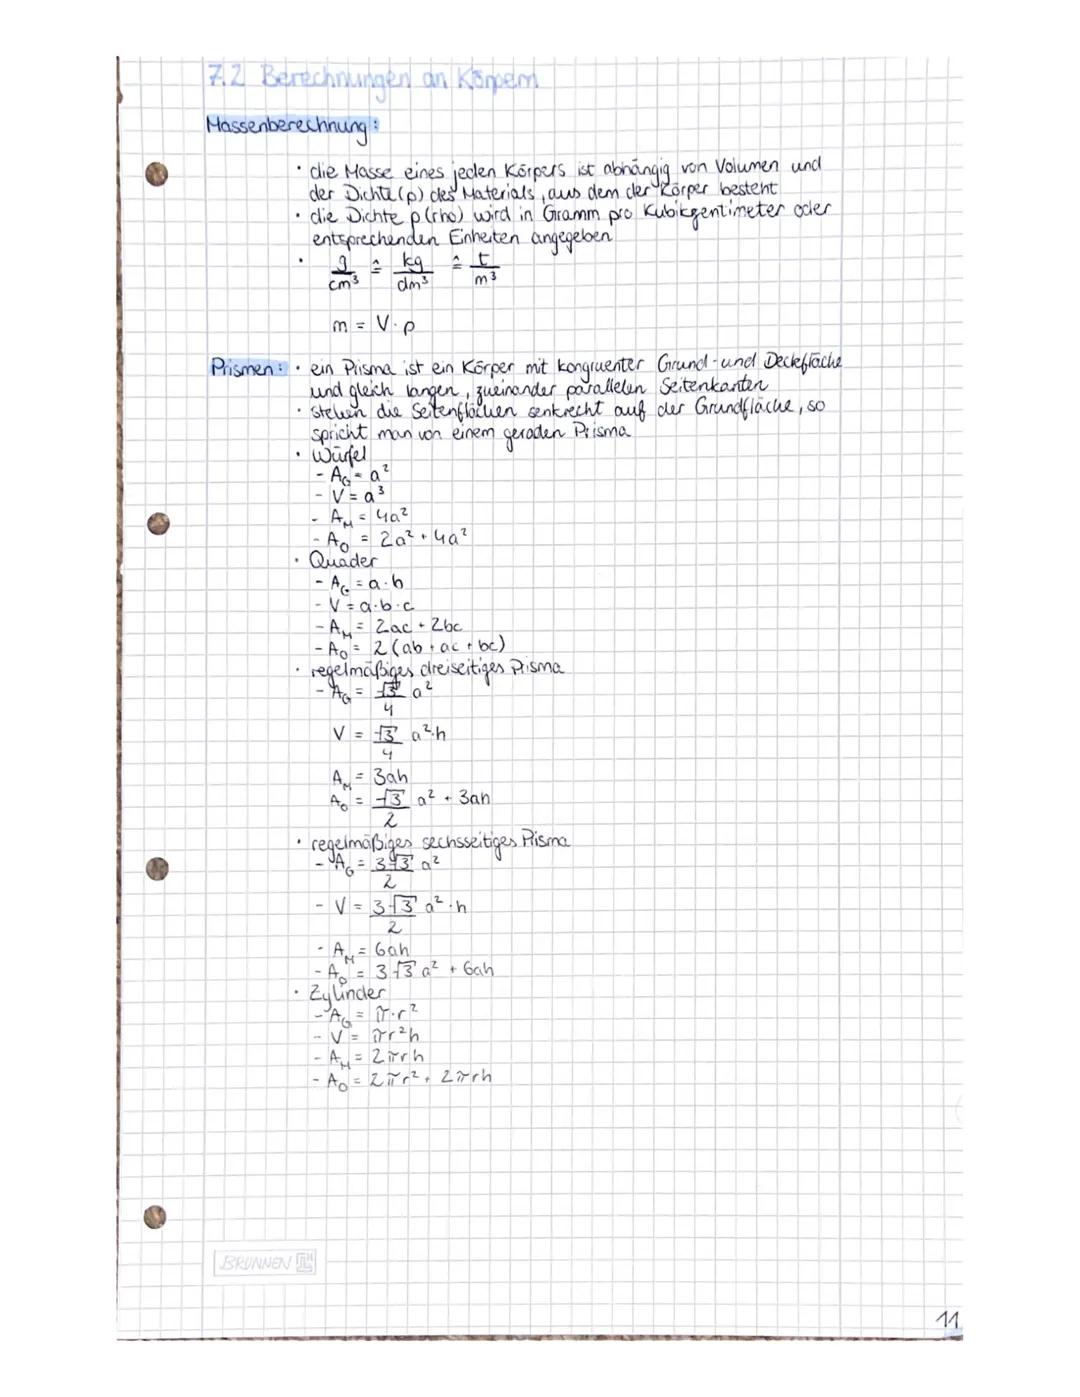 7.2 Berechnungen an Körpern
Massenberechnung:
· die Masse eines jeden Körpers ist abhängig von Volumen und
der Dichte (ρ) des Materials, aus dem der Körper besteht
· die Dichte ρ (rho) wird in Gramm pro Kubikzentimeter oder
entsprechenden Einheiten angegeben
· g/cm³ ≙ kg/dm³ ≙ t/m³
m = V·ρ
Prismen: · ein Prisma ist ein Körper mit kongruenter Grund- und Deckfläche
und gleich langen, zueinander parallelen Seitenkanten
· stehen die Seitenflächen senkrecht auf der Grundfläche, so
spricht man von einem geraden Prisma
· Würfel
- A_G = a²
- V = a³
- A_M = 4a²
- A_O = 2a² + 4a²
· Quader
- A_G = a·b
- V = a·b·c
- A_M = 2ac + 2bc
- A_O = 2(ab + ac + bc)
· regelmäßiges dreiseitiges Prisma
- A_G = √3/4 a²
V = √3/4 a²·h
A_M = 3ah
A_O = √3/2 a² + 3ah
· regelmäßiges sechsseitiges Prisma
- A_G = 3√3/2 a²
- V = 3√3/2 a²·h
- A_M = 6ah
- A_O = 3√3 a² + 6ah
· Zylinder
- A_G = π·r²
- V = πr²h
- A_M = 2πrh
- A_O = 2πr² + 2πrh
BRUNNEN
11